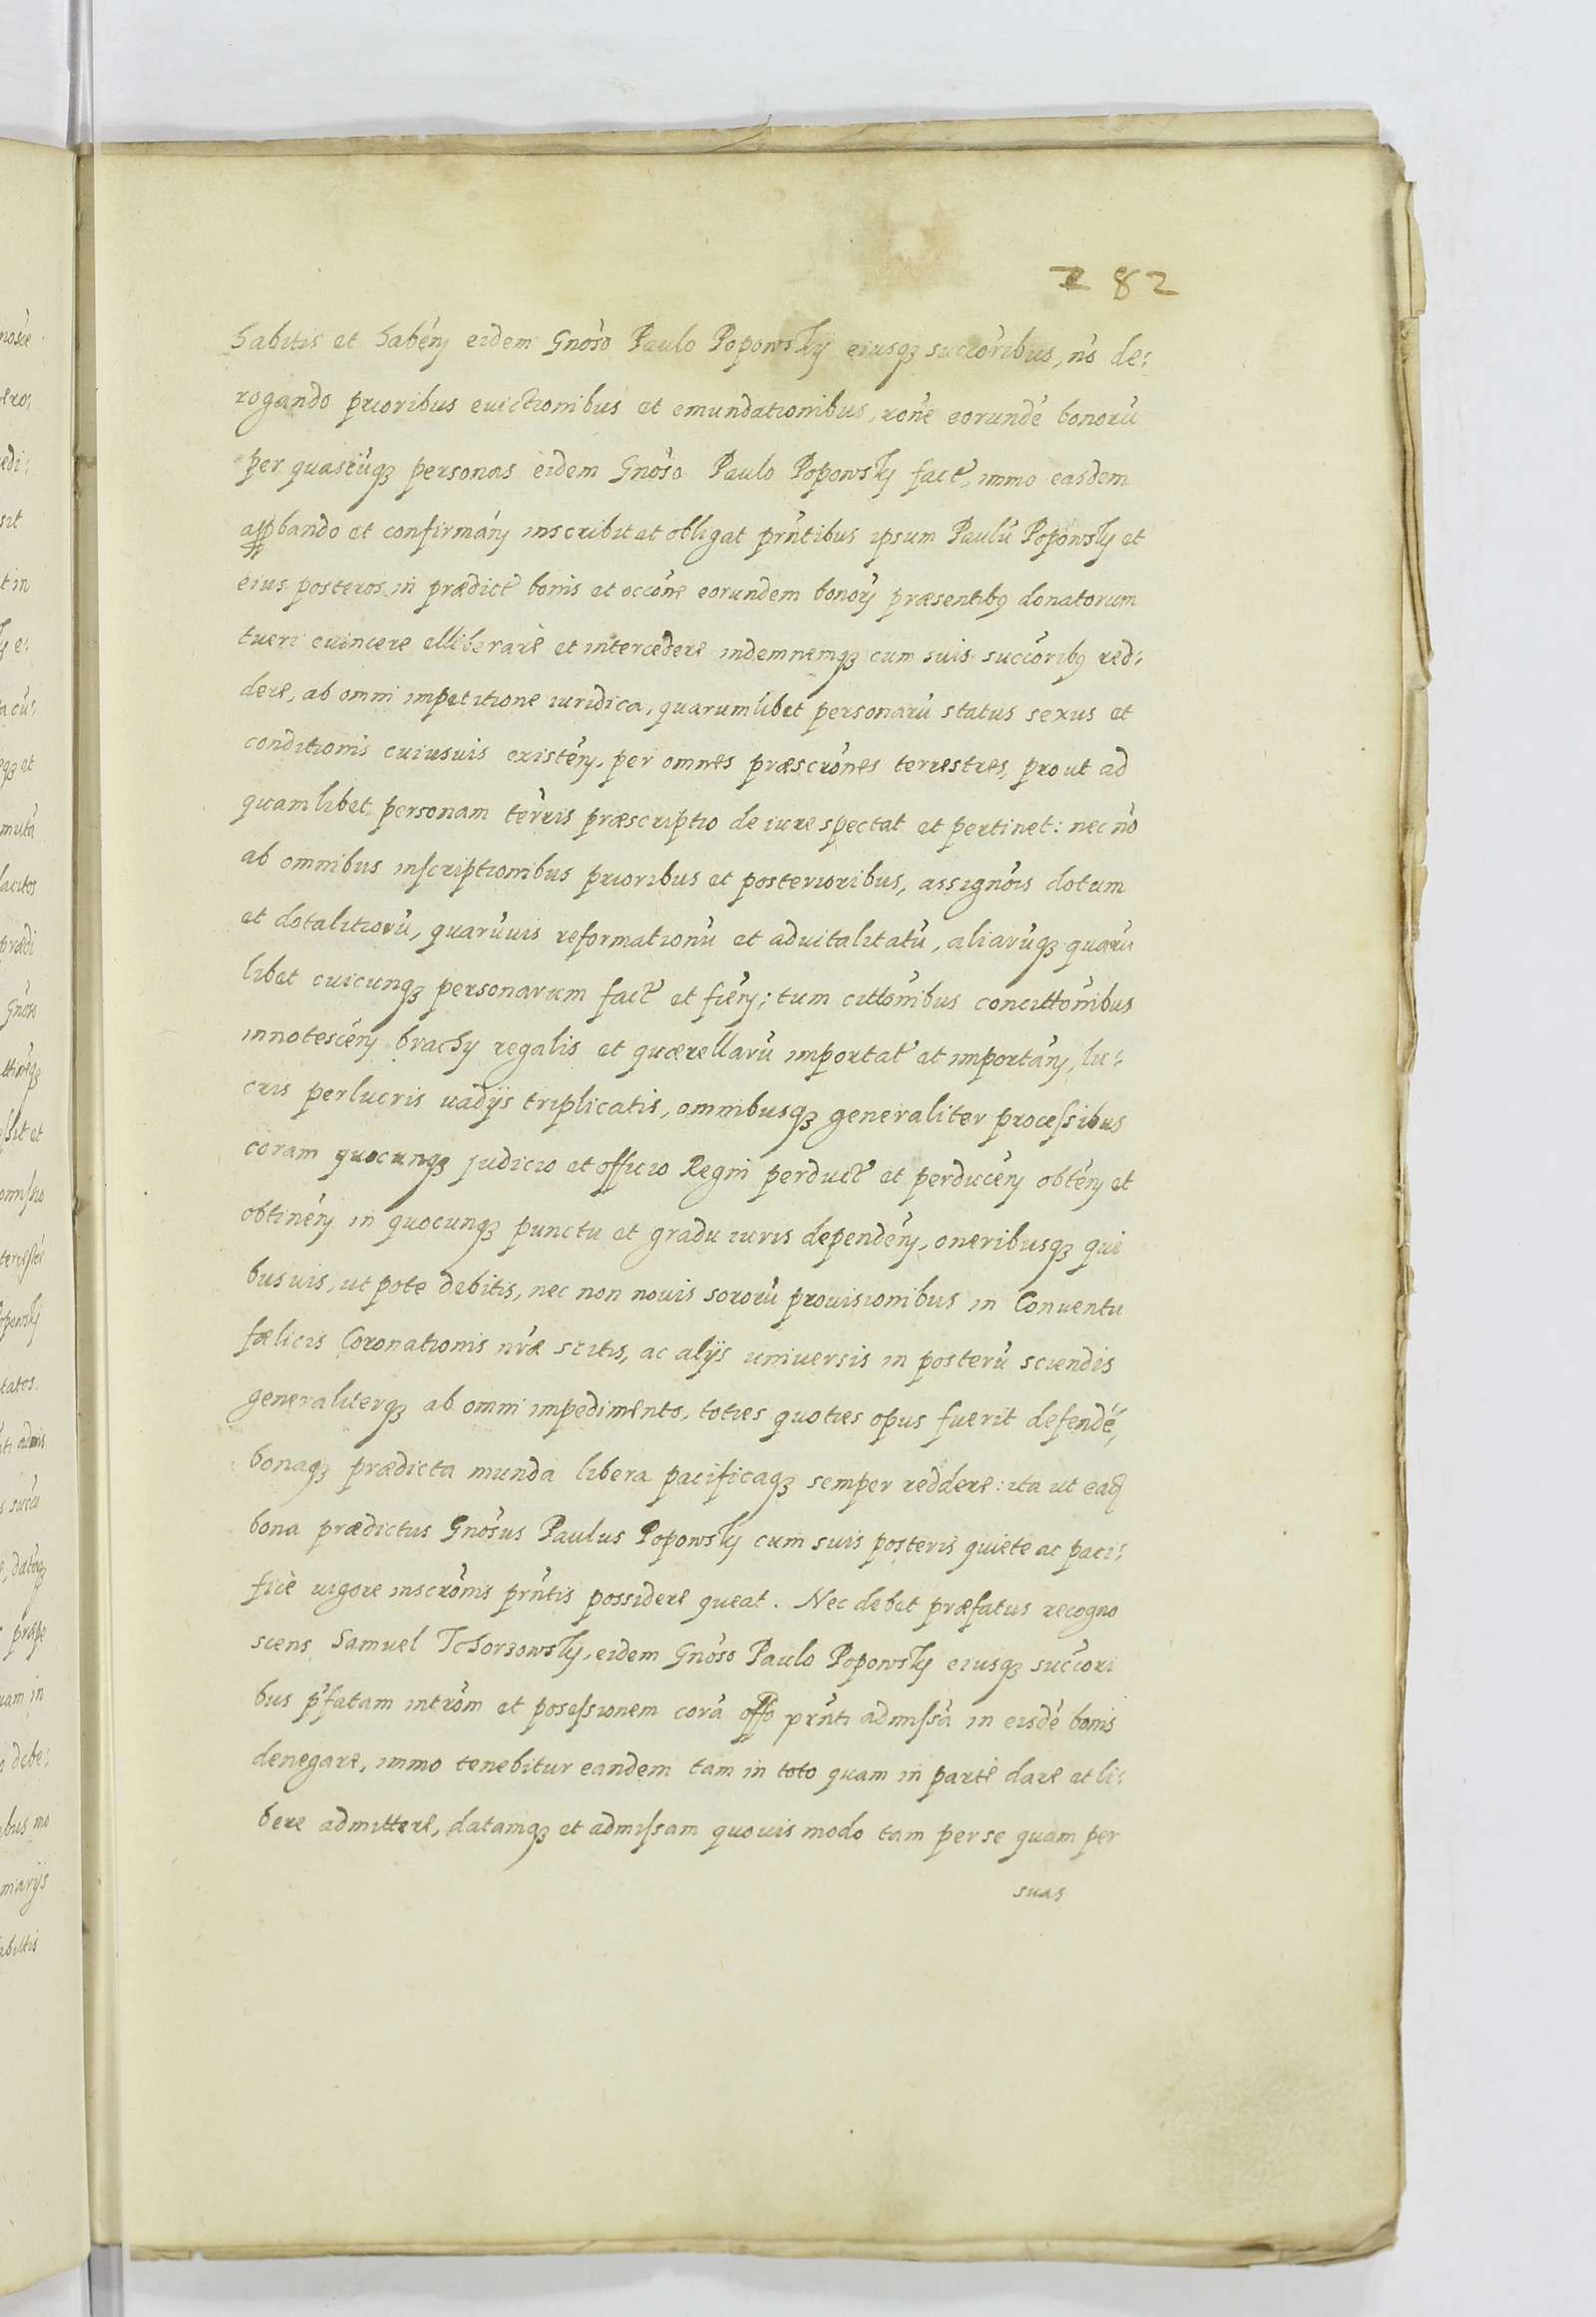 282
habitis et habeń eidem Gnóso Paulo Popowsky eiusqȝ succóribus, nó de:
rogando prioribus euictionibus et emundationibus, roné eorundé bonorú
per quascúqȝ personas eidem Gnóso Paulo Popowsky fact, immo easdem
appbando et confirmań inscribit et obligat prńtibus ipsum Paulú Popowsky et
eius posteros in prædict bonis et occóne eorundem bonoŕ præsentibꝯ donatorum
tueri euincere elliberare et intercedere indemnemqȝ cum suis succóribꝯ red:
dere, ab omni impetitione iuridica, quarumlibet personarú status sexus et
conditionis cuiusuis existeń, per omnes præscrónes terrestres, prout ad
quamlibet personam térris præscriptio de iure spectat et pertinet: nec nó
ab omnibus inscriptionibus prioribus et posterioribus, assignóis dotum
et dotalitiorú, quarúuis reformationú et aduitalitatú, aliarúqȝ quarú
libet cuicunqȝ personarum fact et fień; tum cittónibus concittónibus
innotesceń brachy regalis et quærellarú importat et importań, lu:
cris perlucris uadijs triplicatis, omnibusqȝ generaliter processibus
coram quocunqȝ judicio et officio Regni perduct et perduceń obteń et
obtineń in quocunqȝ punctu et gradu iuris dependeń, oneribusqȝ qui
busuis, ut pote debitis, nec non nouis sororú prouisionibus in Conuentu
fælicis Coronationis nŕæ scitis, ac alijs uniuersis in posterú sciendis
generaliterqȝ ab omni impedimento, toties quoties opus fuerit defendé,
bonaqȝ prædicta munda libera pacificaqȝ semper reddere: ita ut eaq
bona prædictus Gnósus Paulus Popowsky cum suis posteris quiete ac paci:
fice uigore inscrónis prńtis possidere queat. Nec debet præfatus recogno
scens Samuel Tchorzowsky, eidem Gnóso Paulo Popowsky eiusqȝ succóri
bus pŕfatam intróm et possessionem corá offo prńti admissá in eisdé bonis
denegare, immo tenebitur eandem tam in toto quam in parte dare et li:
bere admittere, datamqȝ et admissam quouis modo tam per se quam per
suas